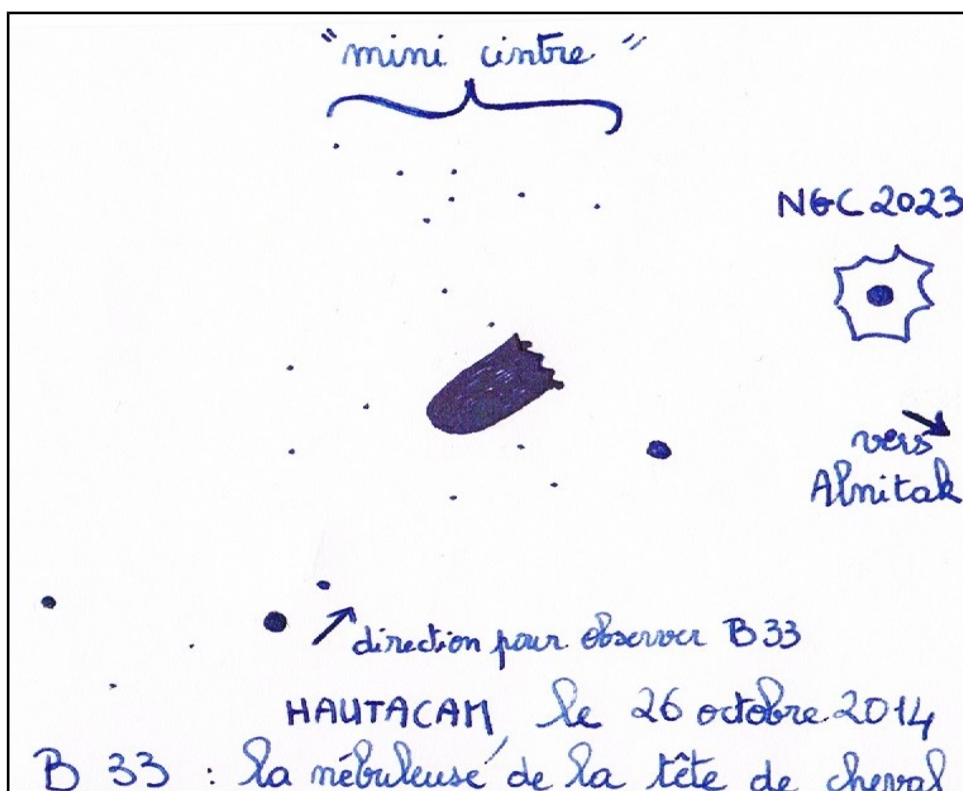 "mini cintre"
NGC 2023
vers
Alnitak
direction pour observer B33
HAUTACAM, le 26 octobre 2014
B 33 : la nébuleuse de la tête de cheval